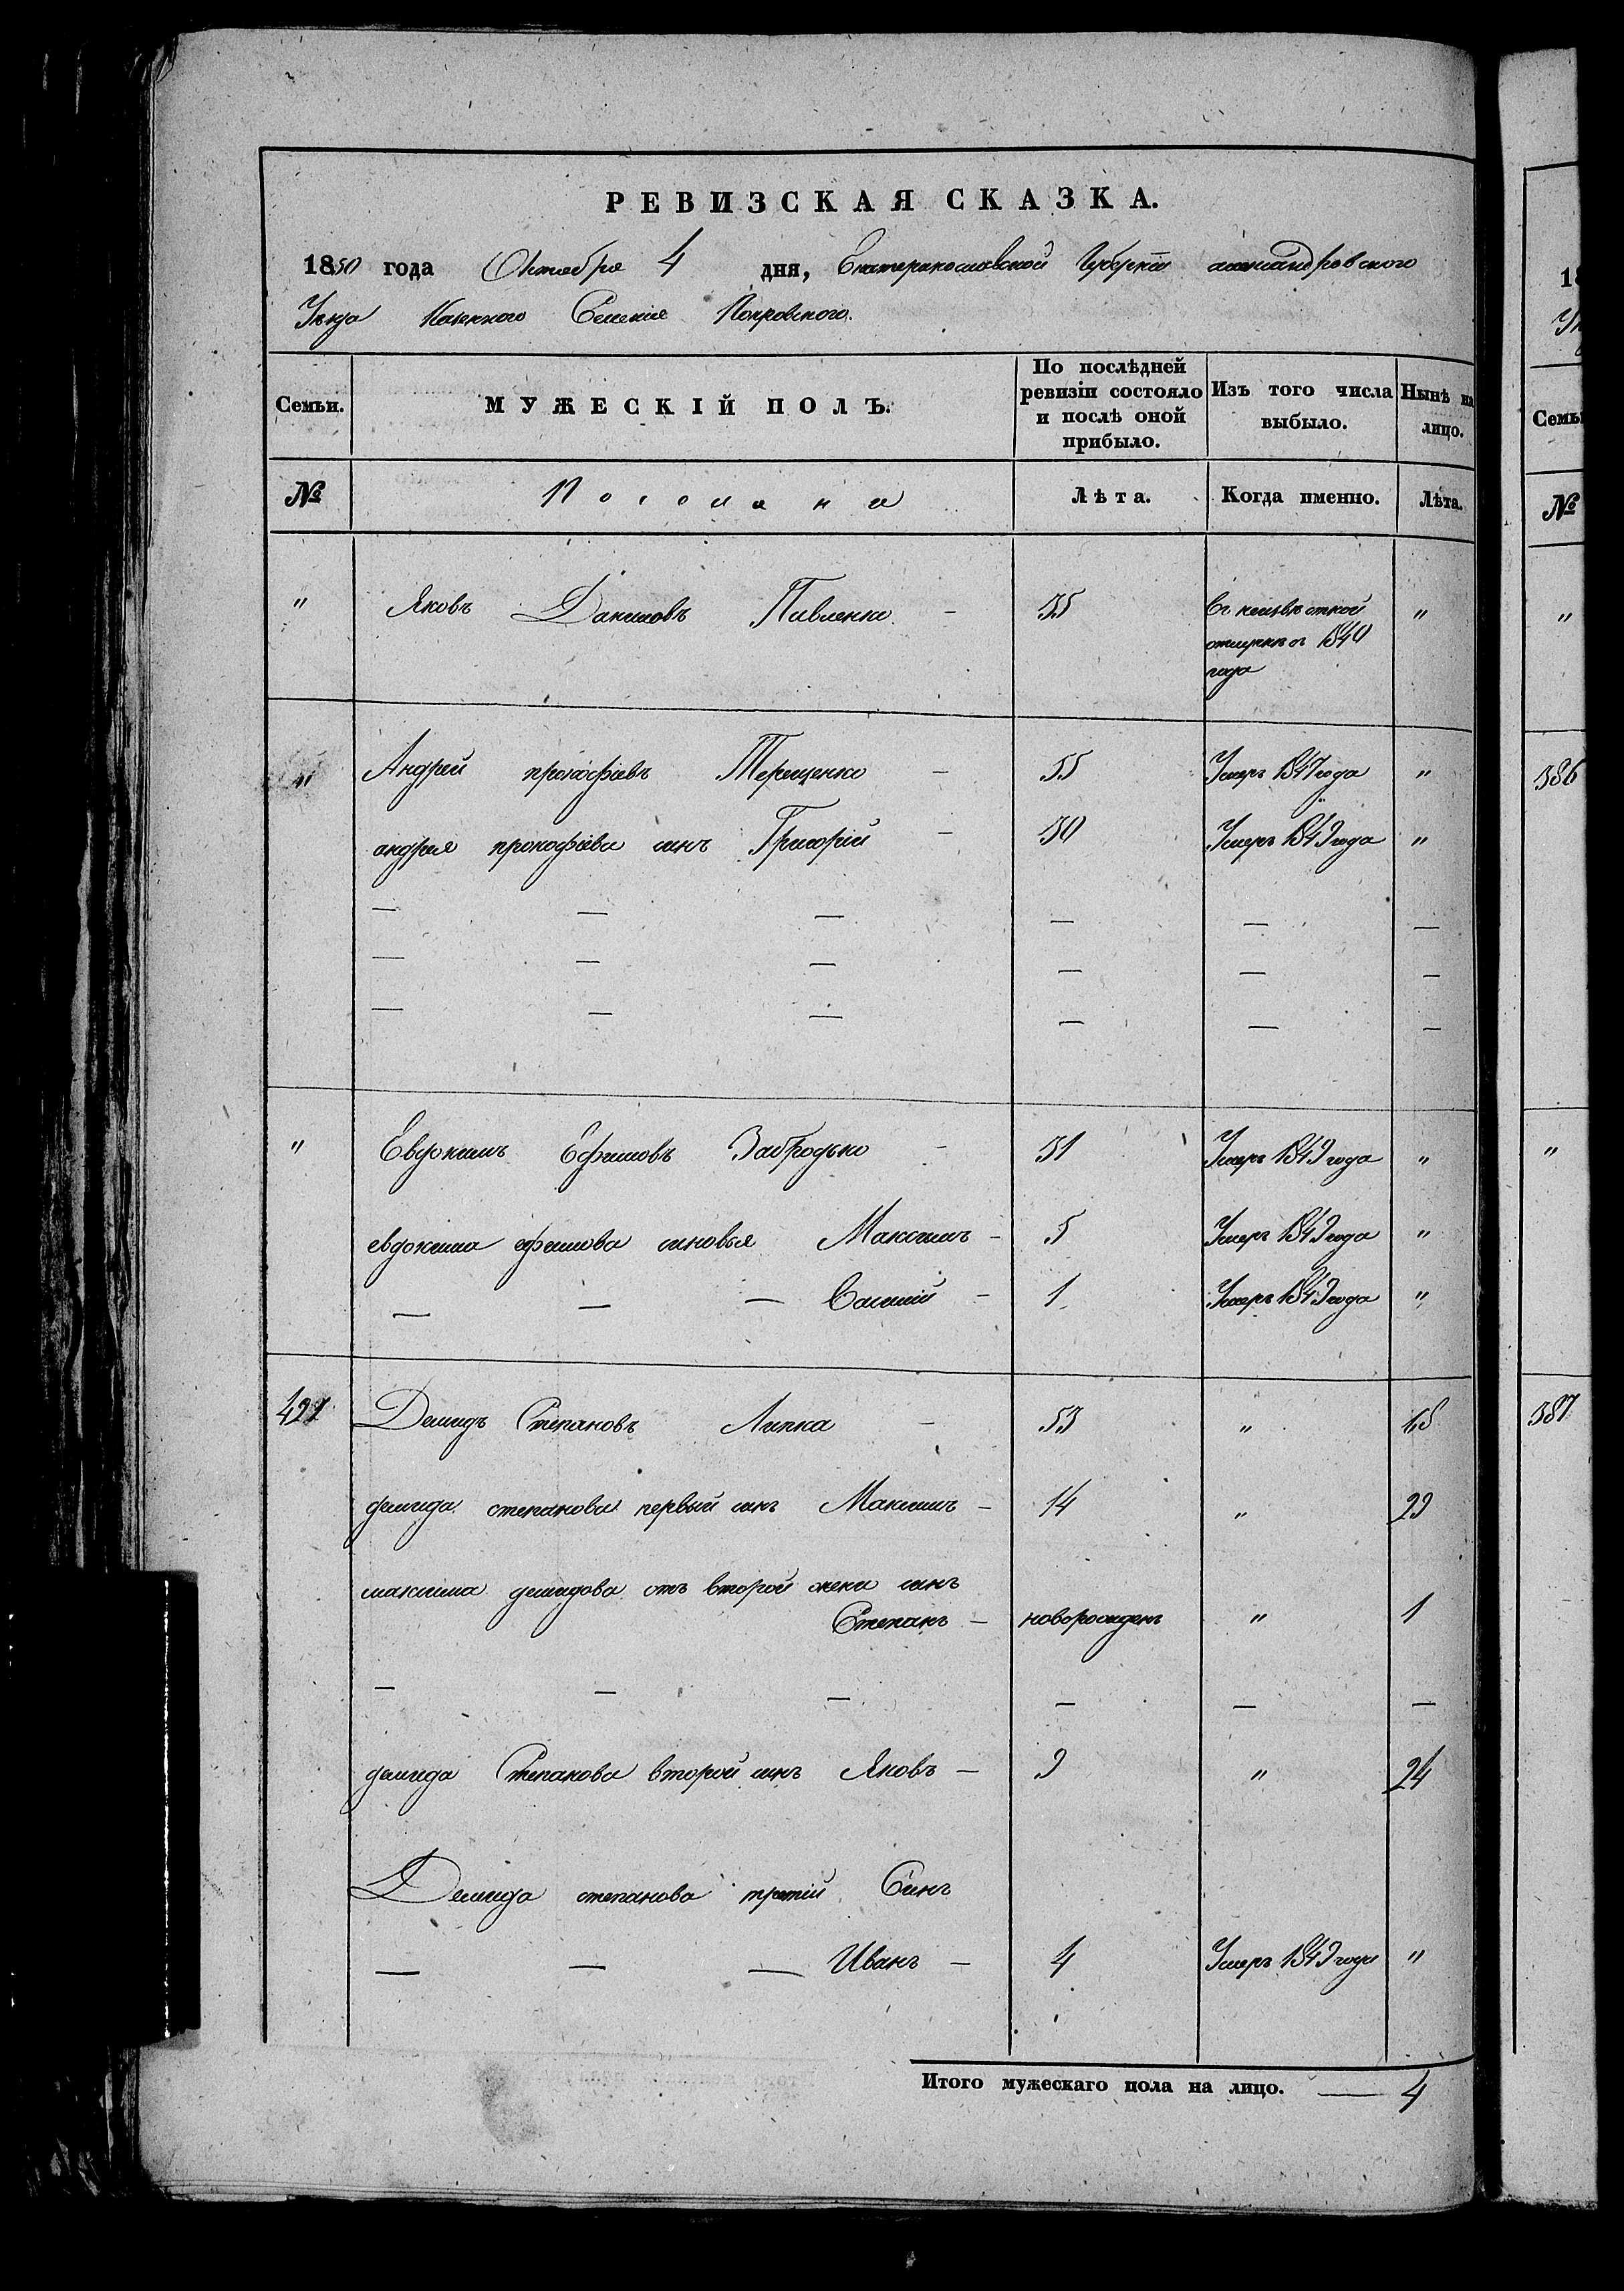 РЕВИЗСКАЯ СКАЗКА.
1850 года Октября 4 дня, Екатеринославской Губернiи александровского
Уезда Казенного Селения Покровского.
Семьи. МУЖЕСКIЙ ПОЛЪ. По послѣдней ревизiи состояло и послѣ оной прибыло. Изъ того числа выбыло. Нынѣ на лицо.
№ Поселяне Лѣта. Когда именно. Лѣта.
" Яковъ Даниловъ Павленко - 35 Въ неизвѣстной "
отлучкѣ съ 1840
года
" Андрей прокофiевъ Терещенко - 55 Умеръ 1847 года "
андрея прокофiева синъ Григорiй - 30 Умеръ 1849 года "
— — — — — —
— — — — — —
— — — — — —
" Евдокимъ Ефимовъ Забродько - 31 Умеръ 1849 года "
евдокима ефимова синовья Максимъ - 5 Умеръ 1849 года "
— — — Василiй - 1 Умеръ 1849 года "
421 Демидъ Степановъ Липка - 53 " 68
демида степанова первый синъ Максимъ - 14 " 29
максима демидова отъ второй жени синъ
Степанъ - новорожденъ " 1
— — — — — —
демида Степанова второй синъ Яковъ - 9 " 24
Демида степанова третiй Синъ
— — — Иванъ - 4 Умеръ 1849 года "
Итого мужескаго пола на лицо. — 4
18
Семьи
№
"
386
"
387